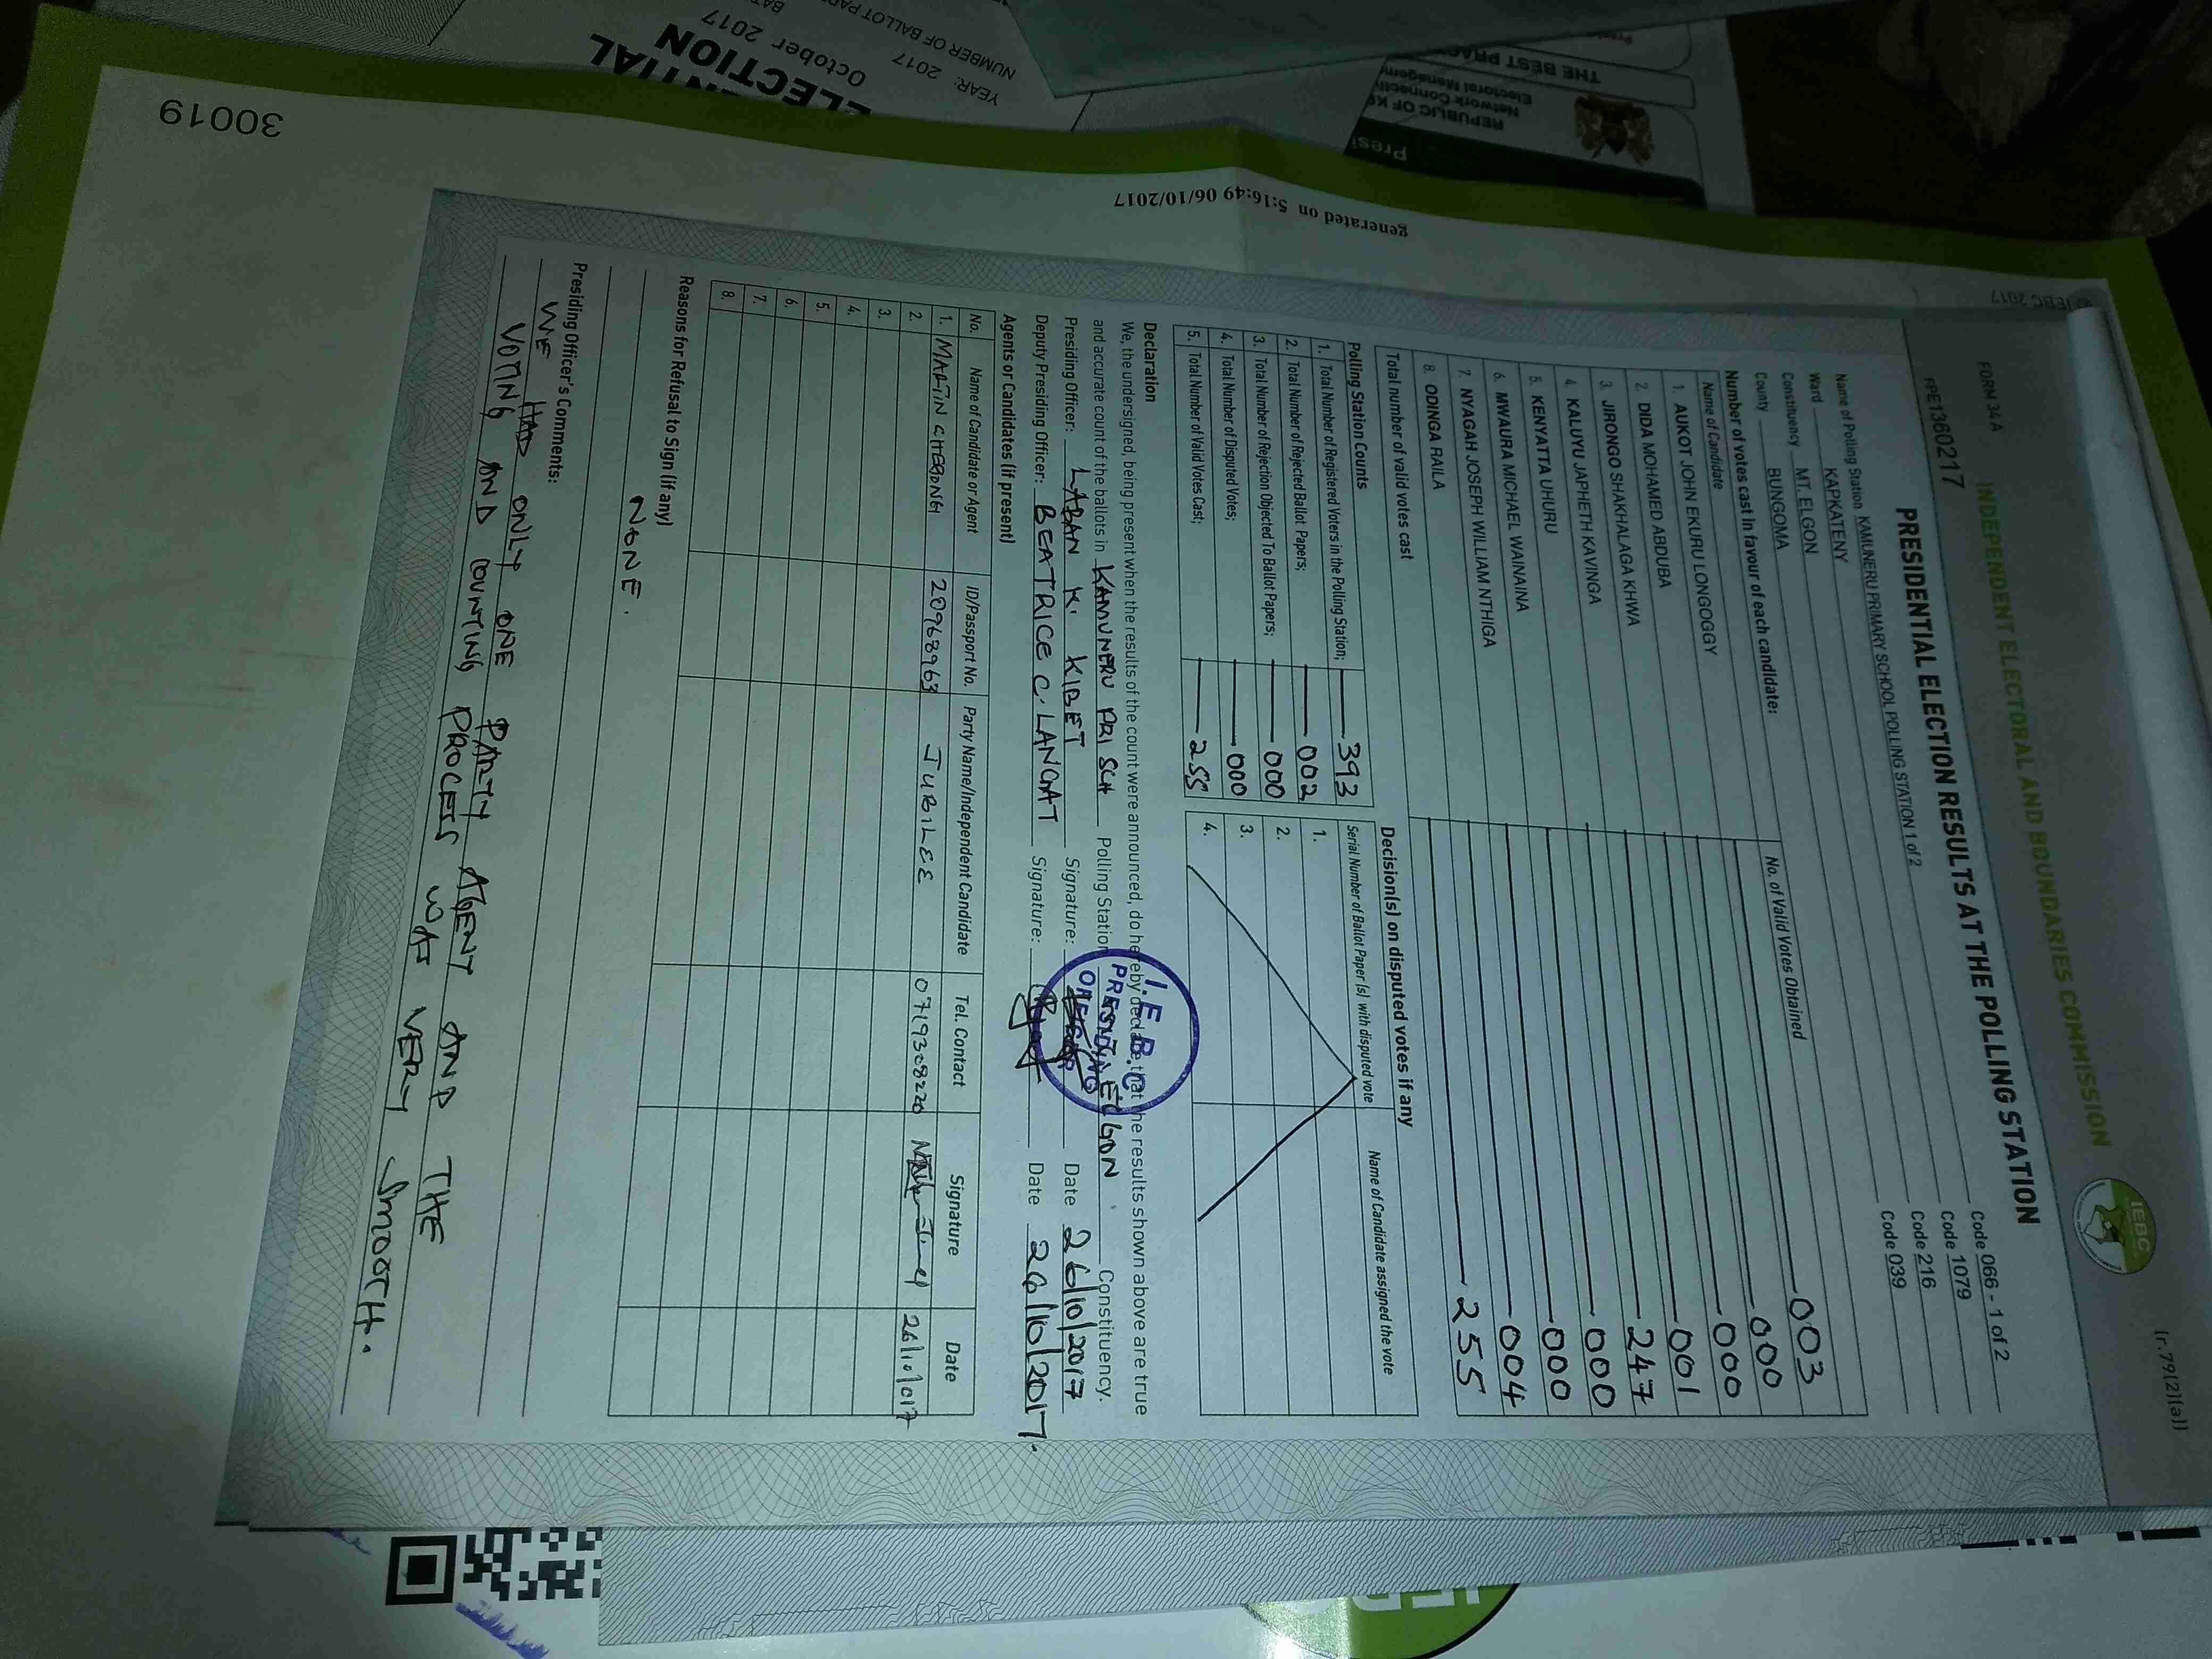 (r.79(2)(a))
FORM 34A
INDEPENDENT ELECTORAL AND BOUNDARIES COMMISSION
IEBC
FPE1360217
PRESIDENTIAL ELECTION RESULTS AT THE POLLING STATION
Name of Polling Station KAMUNERU PRIMARY SCHOOL POLLING STATION 1 of 2 Code 066 - 1 of 2
Ward KAPKATENY Code 1079
Constituency MT. ELGON Code 216
County BUNGOMA Code 039
Number of votes cast in favour of each candidate:
Name of Candidate No. of Valid Votes Obtained
1. AUKOT JOHN EKURU LONGOGGY 003
2. DIDA MOHAMED ABDUBA 000
3. JIRONGO SHAKHALAGA KHWA 000
4. KALUYU JAPHETH KAVINGA 001
5. KENYATTA UHURU 247
6. MWAURA MICHAEL WAINAINA 000
7. NYAGAH JOSEPH WILLIAM NTHIGA 000
8. ODINGA RAILA 004
Total number of valid votes cast 255
Polling Station Counts
1. Total Number of Registered Voters in the Polling Station; 393
2. Total Number of Rejected Ballot Papers; 002
3. Total Number of Rejection Objected To Ballot Papers; 000
4. Total Number of Disputed Votes; 000
5. Total Number of Valid Votes Cast; 255
Decision(s) on disputed votes if any
Serial Number of Ballot Paper (s) with disputed vote Name of Candidate assigned the vote
1.
2.
3.
4.
Declaration
We, the undersigned, being present when the results of the count were announced, do hereby declare that the results shown above are true
and accurate count of the ballots in KAMUNERU PRI SCH Polling Station ELGON Constituency.
Presiding Officer: LABAN K. KIBET Signature: Date 26/10/2017
Deputy Presiding Officer: BEATRICE C. LANGAT Signature: Date 26/10/2017.
I.E.B.C
PRESIDING
OFFICER
Agents or Candidates (if present)
No. Name of Candidate or Agent ID/Passport No. Party Name/Independent Candidate Tel. Contact Signature Date
1. MARTIN CHEBONGI 20968963 JUBILEE 0719308220 26/10/017
2.
3.
4.
5.
6.
7.
8.
Reasons for Refusal to Sign (if any)
NONE.
Presiding Officer's Comments:
WE HAD ONLY ONE PARTY AGENT AND THE
VOTING AND COUNTING PROCESS WAS VERY SMOOTH.
© IEBC 2017
generated on 5:16:49 06/10/2017
30019
ELECTION
October 2017
YEAR: 2017
REPUBLIC OF
Network
Electoral
THE BEST